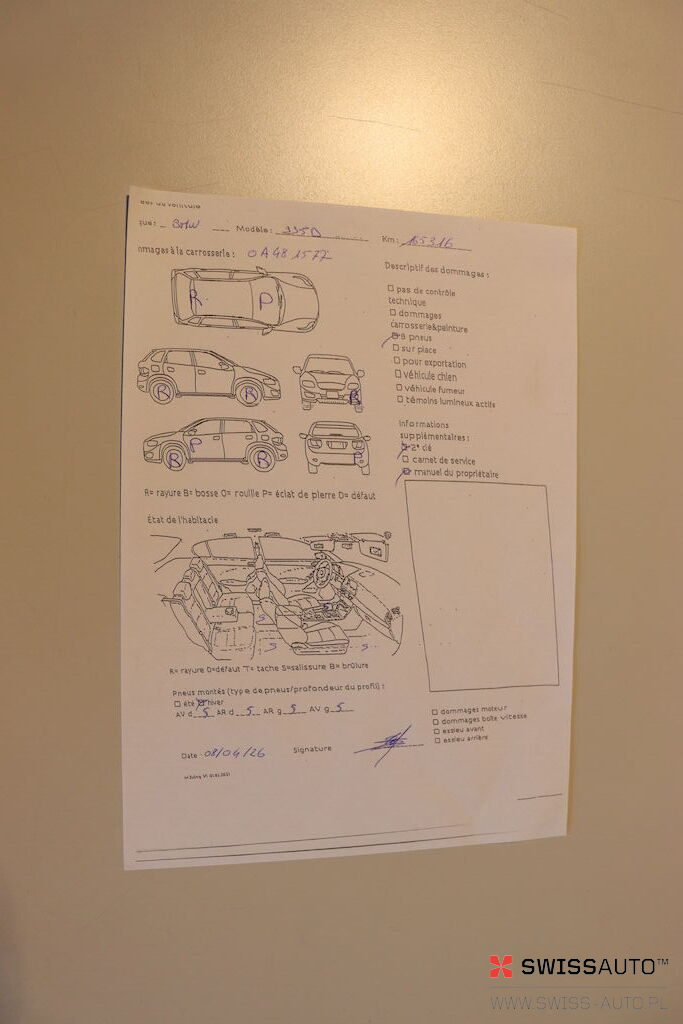 que: BMW Modèle: 335D Km: 165316
mmages à la carrosserie: 0A48 1577
Descriptif des dommages:
R P
R R R
P R R P
☐ pas de contrôle
technique
☐ dommages
carrosserie&peinture
8 pneus
☐ sur place
☐ pour exportation
☐ véhicule chien
☐ véhicule fumeur
☐ témoins lumineux actifs
Informations
supplémentaires:
2° clé
☐ carnet de service
manuel du propriétaire
R= rayure B= bosse O= rouille P= éclat de pierre D= défaut
État de l'habitacle
S S S S
R= rayure D=défaut T= tache S=salissure B= brûlure
Pneus montés (type de pneus/profondeur du profil):
☐ été hiver
AV d 5 AR d 5 AR g 5 AV g 5
☐ dommages moteur
☐ dommages boîte vitesse
☐ essieu avant
☐ essieu arrière
Date 08/04/26 Signature
SWISSAUTO™
WWW.SWISS-AUTO.PL